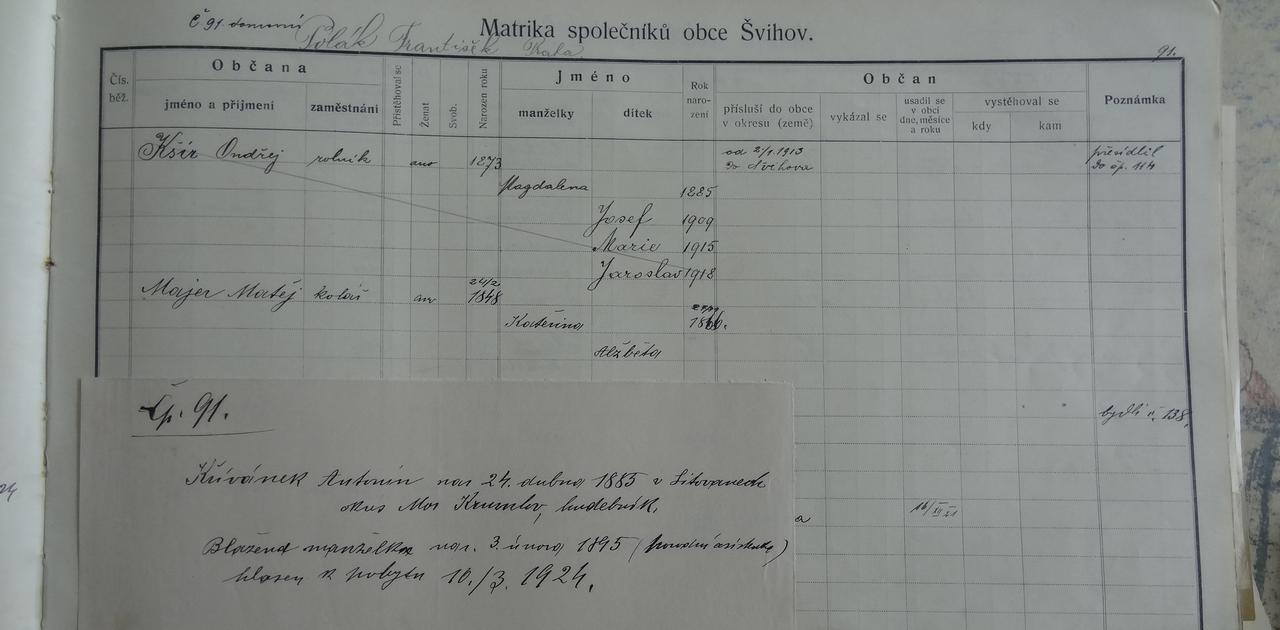 Č 91 domovní
Polák František
Matrika společníků obce Švihov.
91.
Čís. běž.
Občana
jméno a příjmení
zaměstnání
Přistěhoval se
Ženat
Svob.
Narozen roku
Jméno
manželky
dítek
Rok naro- zení
Občan
přísluší do obce v okresu (země)
vykázal se
usadil se v obci dne, měsíce a roku
vystěhoval se
kdy
kam
Poznámka
Kšír Ondřej rolník ano 1873 od 2/1 1913 do Švihova přesídlil do čp. 114
Magdalena 1885
Josef 1909
Marie 1915
Jaroslav 1918
Majer Matěj kolář 24/2 1848
Kateřina
Alžběta
bydlí č. 138.
a
Čp. 91.
Křivánek Antonín nar 24. dubna 1885 v
okres Mor Krumlov, hudebník,
Blažena manželka nar. 3. února 1895 (porodní asistentka)
hlášen k pobytu 10./3. 1924.